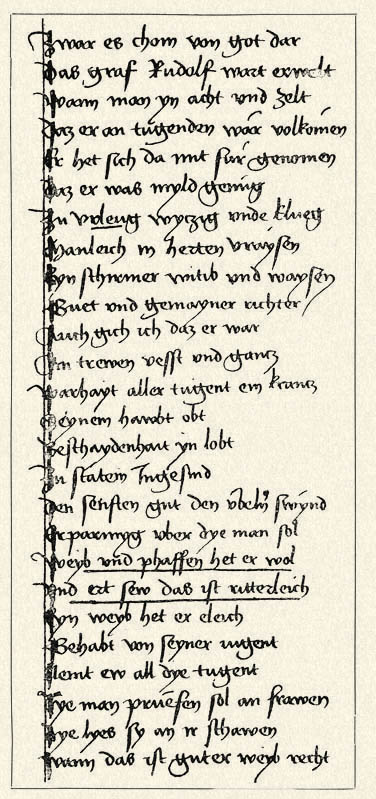 Zwar es chom von got dar
Das graf Rudolf wart erwelt
Wann man yn acht vnd zelt
Daz er an tugenden wär volkomen
Er het sich da mit für genomen
Daz er was myld genug
Zu vrleug wyczig vnde klueg
Manleich in herten vraysen
Eyn schirmer witib vnd waysen
Guet vnd gemayner richter
Auch gich ich daz er war
An trewen vesst vnd gantz
Warhayt aller tugent ein krantz
Seynem hawbt obt
Beschaydenhait yn lobt
In statem Ingesind
Den senften gut den vbeln swynd
Erparmyg vber dye man sol
Weyb vnd phaffen het er wol
Vnd ert sew das ist ritterleich
Eyn weyb het er eleich
Gehabt von seyner iugent
Nemt ew all dye tugent
Dye man pruefen sol an frawen
Dye lyes sy an ir schawen
Wann das ist guter weyb recht